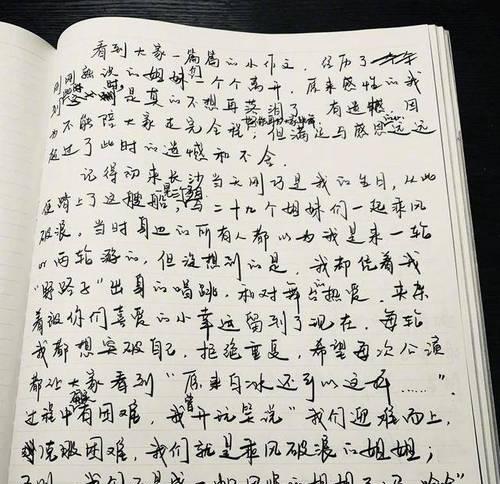 看到大家一篇篇的小作文,经历了
刚刚融洽的姐妹们一个个离开,原来感性的我
到是真的不想再哭泪了,有遗憾,因
为不能陪大家走完全程,但满足与感恩远远
超过了此时的遗憾和不舍.
记得初来长沙当天刚巧是我的生日,从此
便踏上了这艘船,与二十九个姐妹们一起乘风
破浪,当时身边的所有人都以为我是来一轮
两轮游的,但没想到的是,我却凭着我
"野路子"出身的唱跳,和对舞台热爱,夹杂
着被你们喜爱的小幸运留到了现在,每轮
我都想突破自己,拒绝重复,希望每次公演
都让大家看到"原来白冰还可以这样……".
过程中有困难,我曾开玩笑说"我们迎难而上,
克服困难,我们就是乘风破浪的姐姐;